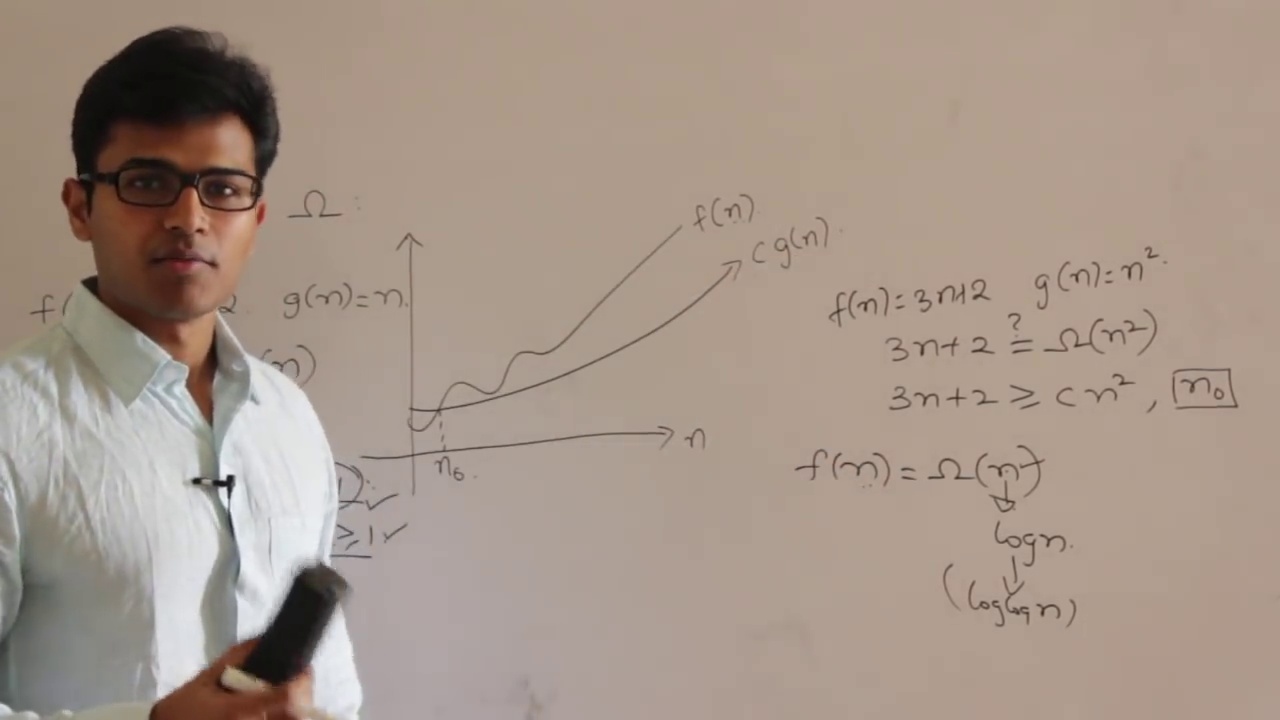 Ω :
f(n)
c g(n).
g(n) = n.
n
n₀.
≥ 1 ✓
f(n) = 3n+2 g(n) = n².
3n+2 ≟ Ω(n²)
3n+2 ≥ c n² , n₀
f(n) = Ω(n)
logn.
(loglogn)